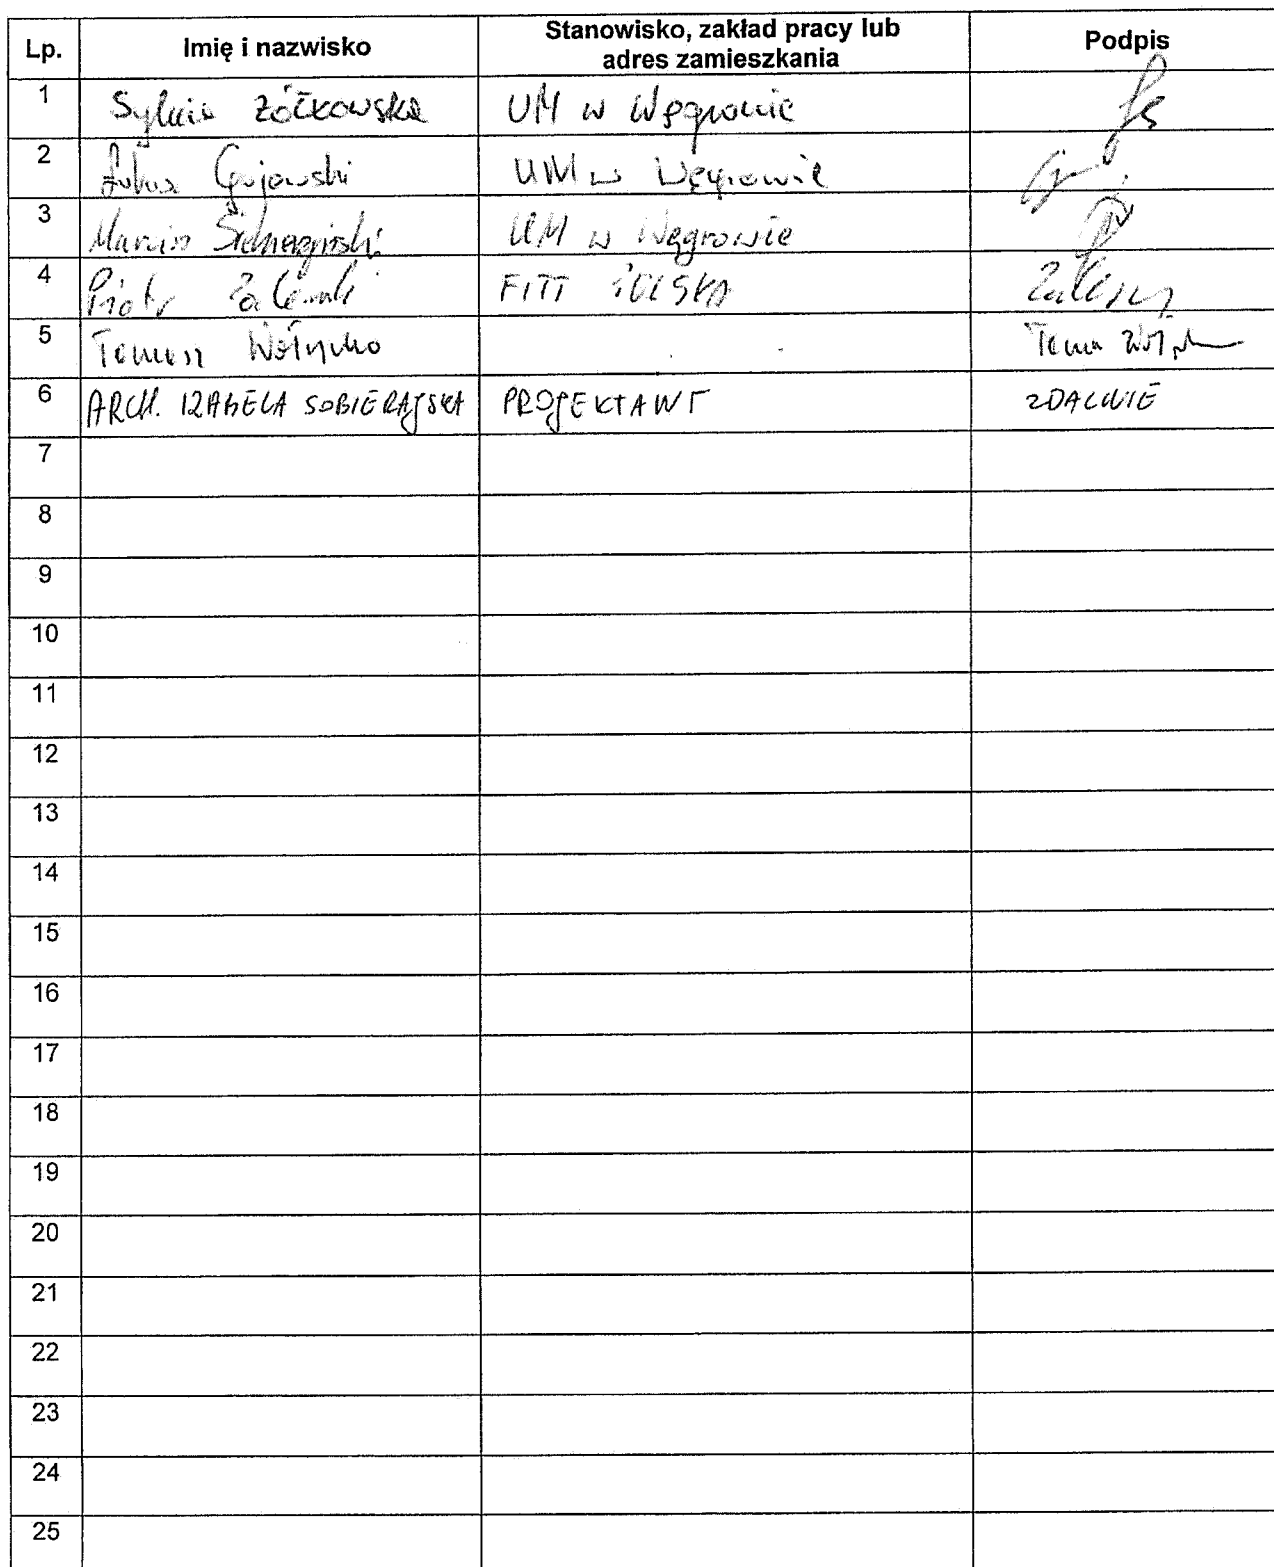 Lp. Imię i nazwisko Stanowisko, zakład pracy lub adres zamieszkania Podpis
1 Sylwia Żółkowska UM w Węgrowie
2 Gujowski UM w Węgrowie
3 Marcin UM w Węgrowie
4 Piotr Zalewski FITT POLSKA
5 Tomasz Wołynko
6 ARCH. IZABELA SOBIERAJSKA PROJEKTANT ZDALNIE
7
8
9
10
11
12
13
14
15
16
17
18
19
20
21
22
23
24
25